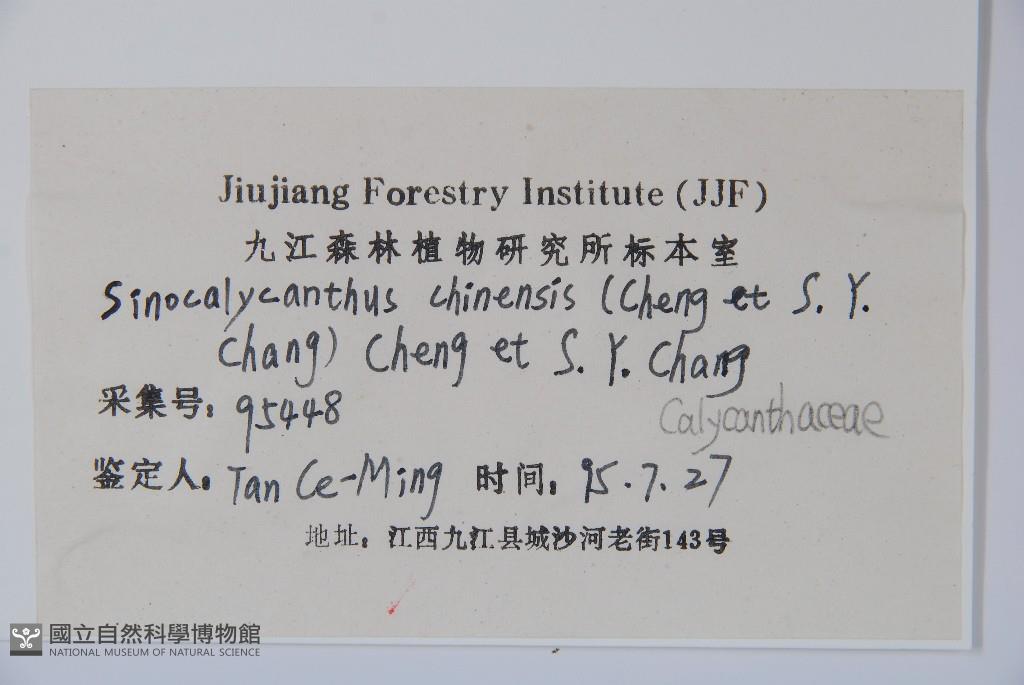 Jiujiang Forestry Institute (JJF)
九江森林植物研究所标本室
Sinocalycanthus chinensis (Cheng et S. Y.
Chang) Cheng et S. Y. Chang
采集号: 95448
Calycanthaceae
鉴定人: Tan Ce-Ming 时间: 95.7.27
地址: 江西九江县城沙河老街143号
國立自然科學博物館
NATIONAL MUSEUM OF NATURAL SCIENCE